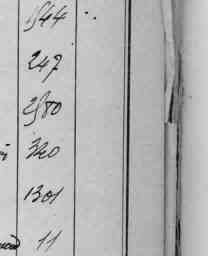 1544
247
2580
320
1301
11